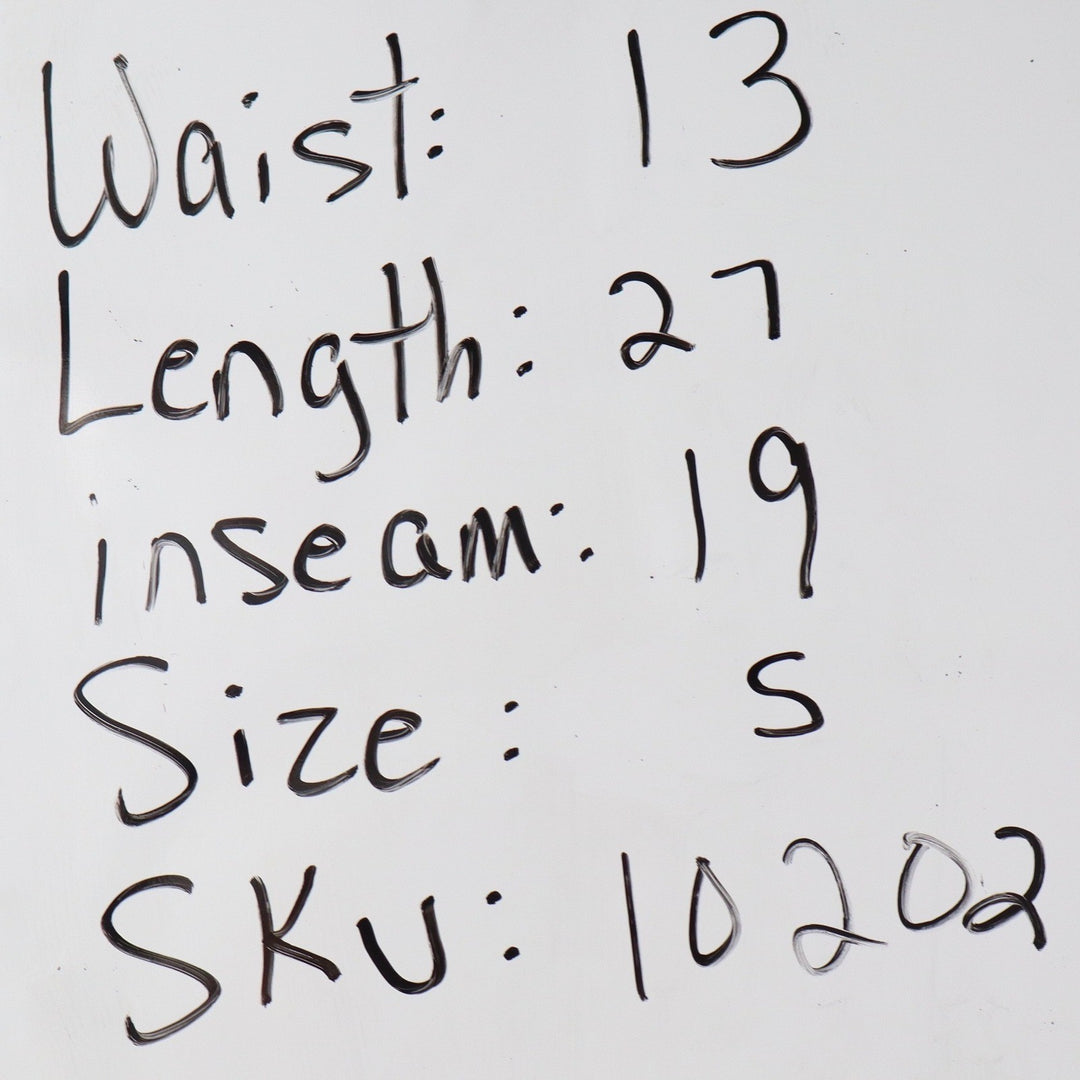 Waist: 13
Length: 27
inseam: 19
Size: S
SKU: 10202